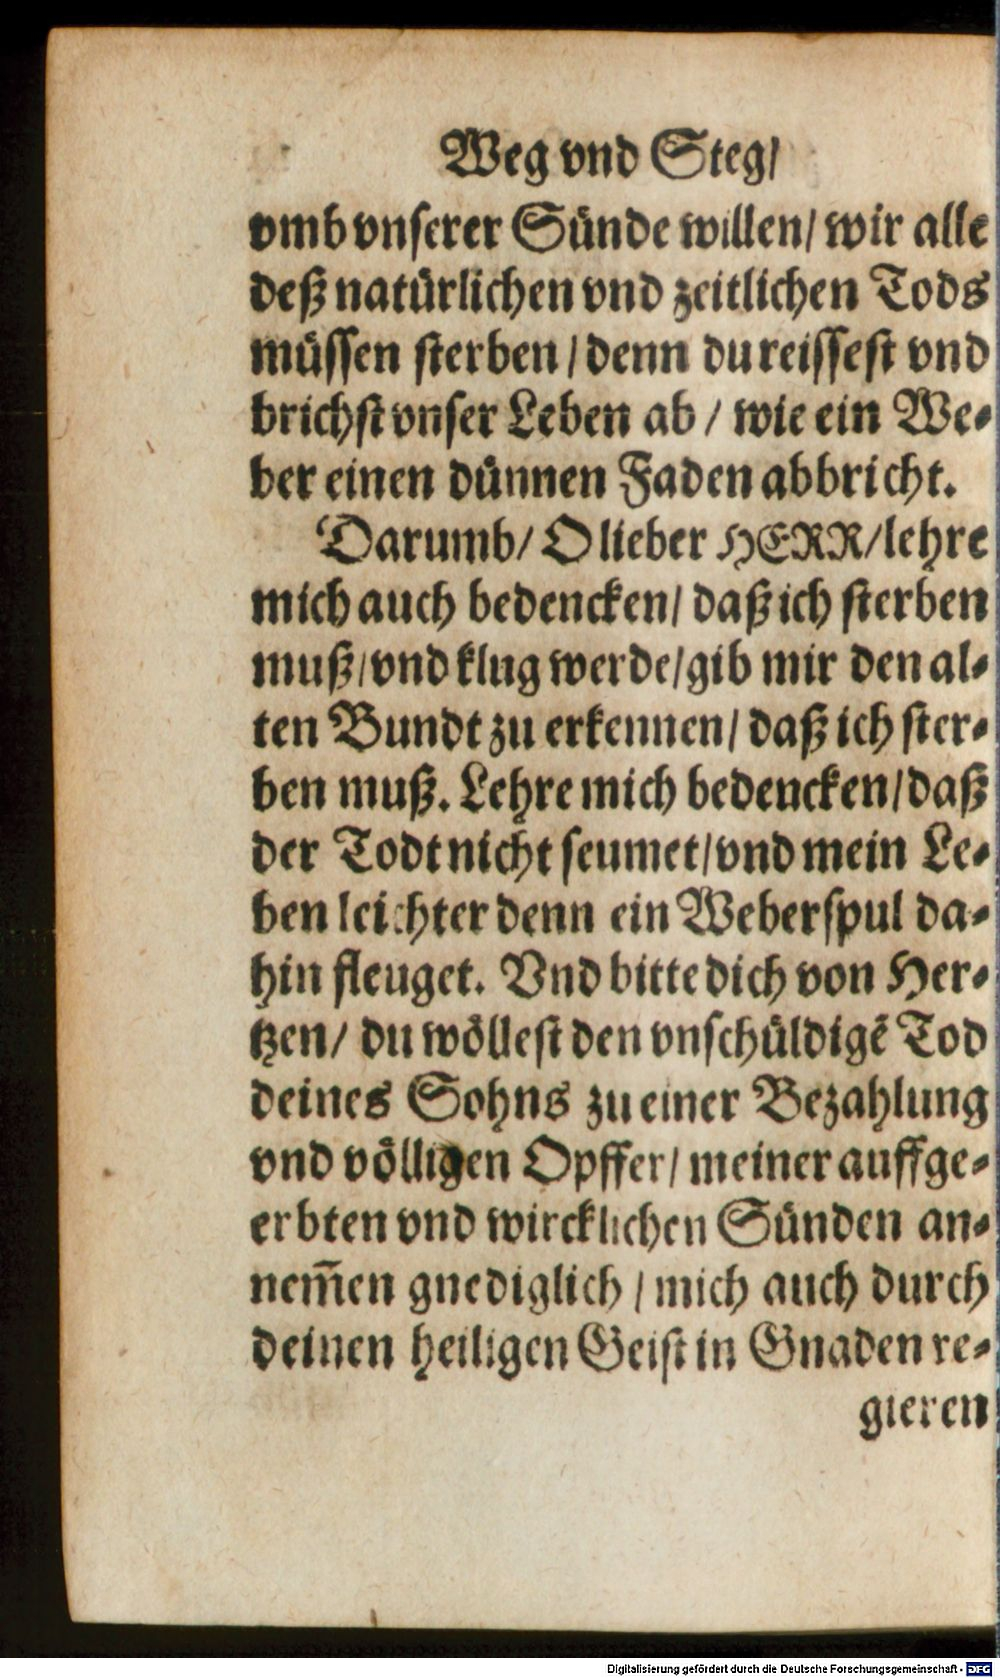 Weg vnd Steg/
vmb vnserer Sünde willen/ wir alle
deß natürlichen vnd zeitlichen Tods
müssen sterben/ denn du reissest vnd
brichst vnser Leben ab/ wie ein We-
ber einen dünnen Faden abbricht.
Darumb/ O lieber HERR/ lehre
mich auch bedencken/ daß ich sterben
muß/ vnd klug werde/ gib mir den al-
ten Bundt zu erkennen/ daß ich ster-
ben muß. Lehre mich bedencken/ daß
der Todt nicht seumet/ vnd mein Le-
ben leichter denn ein Weberspul da-
hin fleuget. Vnd bitte dich von Her-
tzen/ du wöllest den vnschüldigē Tod
deines Sohns zu einer Bezahlung
vnd völligen Opffer/ meiner auffge-
erbten vnd wircklichen Sünden an-
nem̃en gnediglich/ mich auch durch
deinen heiligen Geist in Gnaden re-
gieren
Digitalisierung gefördert durch die Deutsche Forschungsgemeinschaft - DFG